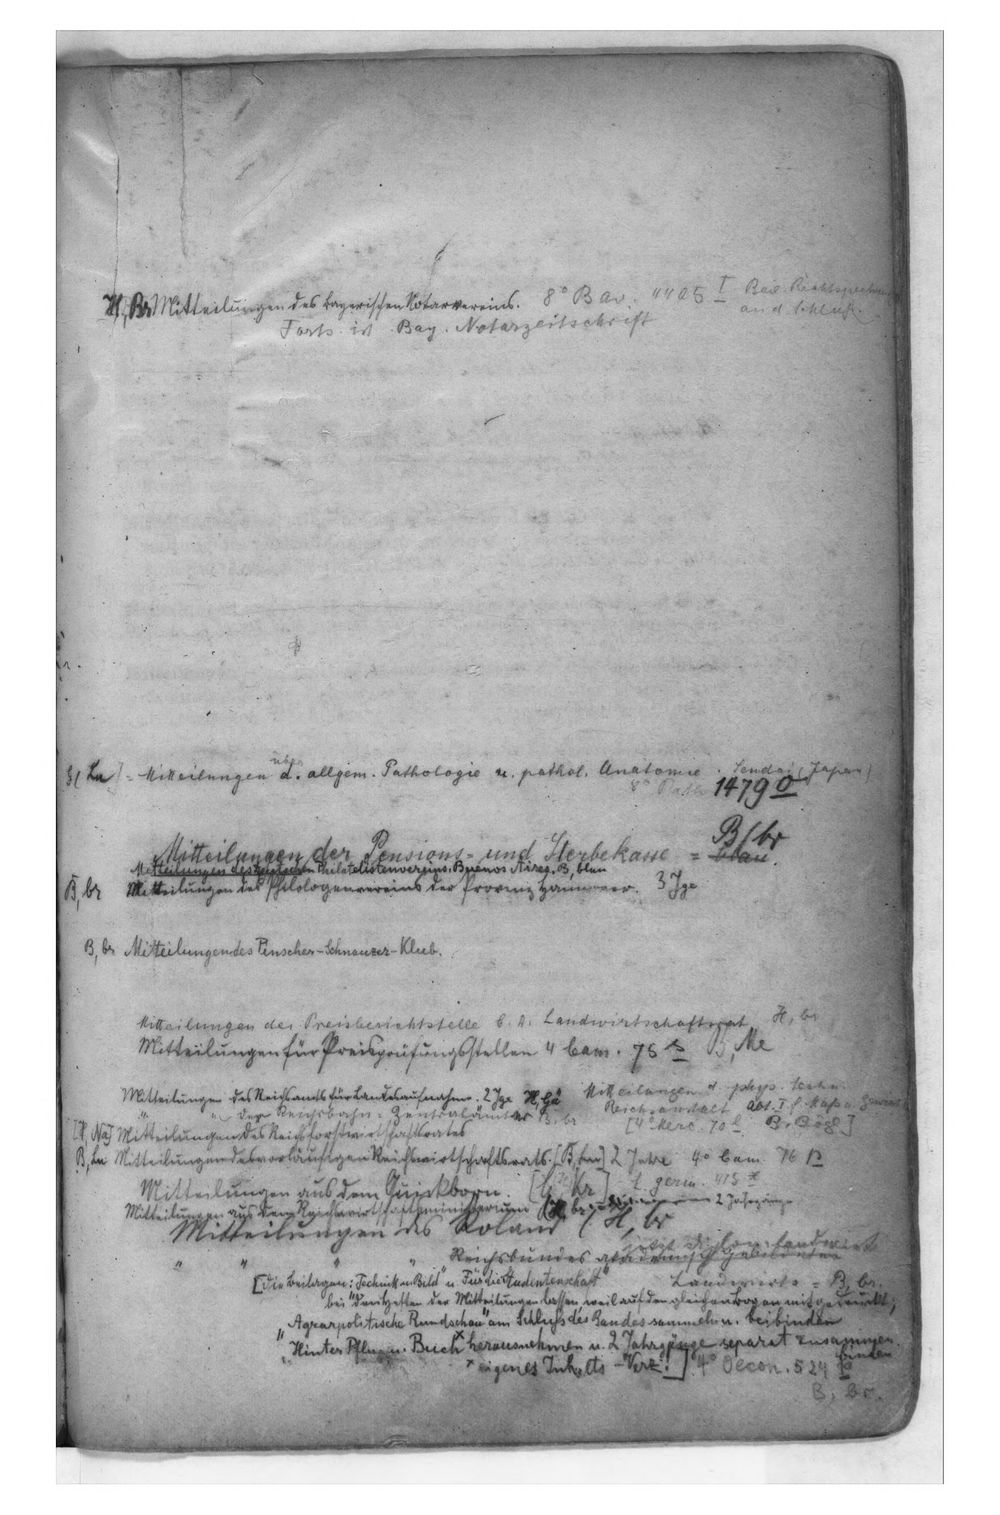 H, Br Mitteilungen des bayerischen Notarvereins. 8° Bav. 4405 I Bay. Rechtsprechung
Forts. ist Bay. Notarzeitschrift and. Schluß.
Ln] = Mitteilungen über d. allgem. Pathologie u. pathol. Anatomie. Sendai (Japan)
8° Path. 1479 0
B/br
Mitteilungen der Pensions- und Sterbekasse = blau.
Mitteilungen des Deutschen Philatelistenvereins. Buenos Aires. B, blau
B, br Mitteilungen des Philologenvereins der Provinz Hannover. 3 Jge
B, br Mitteilungen des Pinscher-Schnauzer-Klub.
Mitteilungen der Preisberichtstelle b. d. Landwirtschaftsrat H, br
Mitteilungen für Preisprüfungsstellen 4° Cam. 75 B, Me
Mitteilungen des Reichsamts für Landesaufnahme. 2 Jge H, Gä Mitteilungen d. phys. techn.
" " der Reichsbahn-Zentralämter B, br Reichsanstalt Abt. I
[H, Na] Mitteilungen des Reichsforstwirtschaftsrates [4° Merc. 70
B, Ln Mitteilungen des vorläufigen Reichswirtschaftsrats. 2 Jahre 4° Cam. 76
Mitteilungen aus dem Quickborn. [H/Kr] P. germ. 415
Mitteilungen aus dem Reichswirtschaftsministerium 2 Jahrgänge
Mitteilungen des Roland (H, br
" " " Reichsbundes akademisch gebildeter
Landwirte = B, br.
[die Beilagen: Technik im Bild" u. "Für die Studentenschaft"
bei den Heften der Mitteilungen lassen, weil auf den gleichen Bogen mitgedruckt;
Agrarpolitische Rundschau" am Schluß des Bandes sammeln u. beibinden
"Hinter Pflug u. Buch" herausnehmen u. 2 Jahrgänge separat zusammen
binden
× eigenes Inhalts-Verz.!] 4° Oecon. 524
B, br.